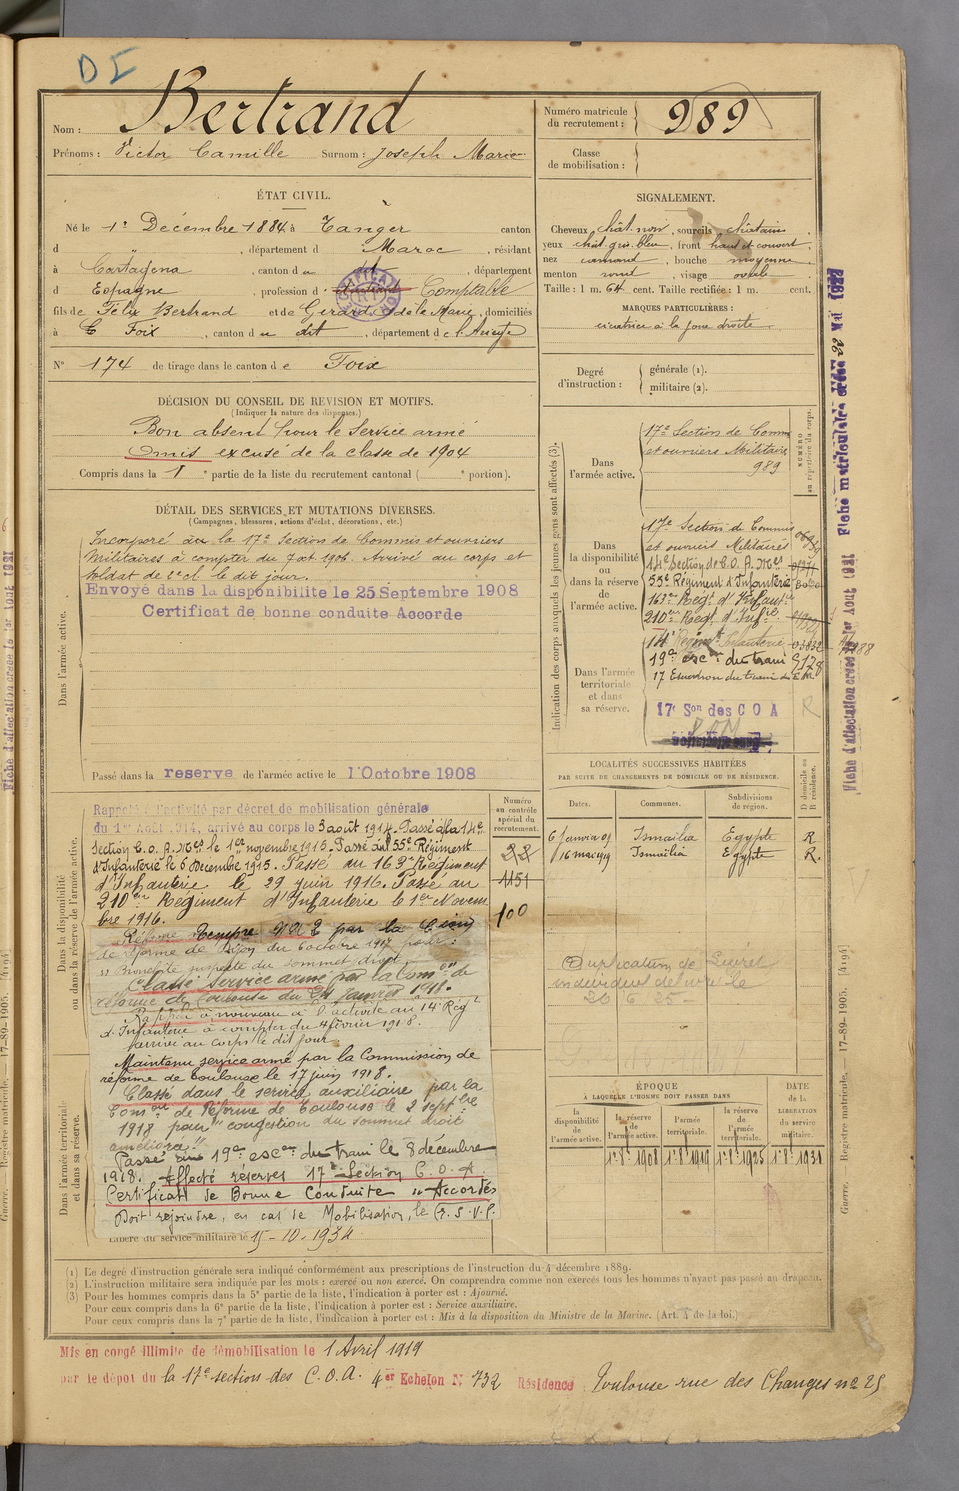 DE
Nom : Bertrand
Prénoms : Victor Camille Surnom : Joseph Marie
Numéro matricule du recrutement : 989
Classe de mobilisation :
ÉTAT CIVIL.
Né le 1er Décembre 1884 à Tanger canton
d " , département d Maroc , résidant
à Cartagena , canton d u dit , département
d Espagne , profession d' Comptable
fils de Félix Bertrand et de Gerard de la Marie, domiciliés
à Foix , canton d u dit , département d e l'Ariège
N° 174 de tirage dans le canton d e Foix
SIGNALEMENT.
Cheveux chât. noir , sourcils châtains
yeux chât. gris bleu , front haut et couvert ,
nez , bouche moyenne ,
menton rond , visage ovale
Taille : 1 m. 64 cent. Taille rectifiée : 1 m. cent.
MARQUES PARTICULIÈRES :
cicatrice à la joue droite
Degré d'instruction : générale (1).
militaire (2).
DÉCISION DU CONSEIL DE REVISION ET MOTIFS.
(Indiquer la nature des dispenses.)
Bon absent pour le service armé
Omis excusé de la classe de 1904
Compris dans la 1e partie de la liste du recrutement cantonal ( e portion).
DÉTAIL DES SERVICES ET MUTATIONS DIVERSES.
(Campagnes, blessures, actions d'éclat, décorations, etc.)
Dans l'armée active.
Incorporé à la 17e Section de Commis et ouvriers
Militaires à compter du 7 oct. 1906. Arrivé au corps et
soldat de 2e cl. le dit jour.
Envoyé dans la disponibilité le 25 Septembre 1908
Certificat de bonne conduite Accordé
Passé dans la reserve de l'armée active le 1 Octobre 1908
Indication des corps auxquels les jeunes gens sont affectés (3).
NUMÉRO au répertoire du corps.
Dans l'armée active.
17e Section de Commis
et ouvriers Militaires
989
Dans la disponibilité ou dans la réserve de l'armée active.
17e Section de Commis
et ouvriers Militaires
14e Section de C. O. A. Mres
55e Régiment d'Infanterie
163me Régt. d'Infantrie
210me Regt. d'Infie
Dans l'armée territoriale et dans sa réserve.
14e Régimt Infanterie
19e escon du train 9128
17 Escadron du train des Eq.
17e Son des C O A
R
Fiche matriculaire créée 22 Mai 1922
Fiche d'affectation créée 1er Aout 1921
LOCALITÉS SUCCESSIVES HABITÉES
PAR SUITE DE CHANGEMENTS DE DOMICILE OU DE RÉSIDENCE.
Dates. Communes. Subdivisions de région. D domicile ou R résidence.
6 janvier 09 Ismaïlia Egypte R
16 mai 1919 Ismaïlia Egypte R.
Duplication de livret
individuel délivré le
20 6 25
Dans la disponibilité ou dans la réserve de l'armée active.
Numéro au contrôle spécial du recrutement.
22
1151
100
Rappelé à l'activité par décret de mobilisation générale
du 1er Août 1914, arrivé au corps le 3 août 1914. Passé à la 14e
Section C. O. A. Mres le 1er novembre 1915. Passé au 55e Régiment
d'Infanterie le 6 Décembre 1915. Passé au 163e Régiment
d'Infanterie le 29 Juin 1916. Passé au
210me Régiment d'Infanterie le 1er Novem
bre 1916.
Réformé Tempre N° 2 par la Cion
de réforme de Dijon du 6 octobre 1917 pour :
"Bronchite suspecte du sommet droit"
Classé service armé par la Comon de
réforme de Toulouse du 24 Janvier 1918.
Rappelé à nouveau à l'activité au 14e Régt
d'Infanterie à compter du 4 février 1918.
arrivé au corps le dit jour.
Maintenu service armé par la Commission de
réforme de Toulouse le 17 juin 1918.
Classé dans le service auxiliaire par la
Comon de Réforme de Toulouse le 2 septbre
1918 pour "congestion du sommet droit
améliorée"
Passé au 19e escon du train le 8 décembre
1918. Affecté réserves 17e Section C. O. A.
Certificat de Bonne Conduite "Accordé"
Doit rejoindre, en cas de Mobilisation, le G. S. V. P.
Libéré du service militaire le 15-10-1934
Dans l'armée territoriale et dans sa réserve.
ÉPOQUE
À LAQUELLE L'HOMME DOIT PASSER DANS
la disponibilité de l'armée active. la réserve de l'armée active. l'armée territoriale. la réserve de l'armée territoriale.
DATE de la LIBÉRATION du service militaire.
1r 8e 1908 1r 8e 1919 1r 8e 1925 1r 8e 1931
(1) Le degré d'instruction générale sera indiqué conformément aux prescriptions de l'instruction du 4 décembre 1889.
(2) L'instruction militaire sera indiquée par les mots : exercé ou non exercé. On comprendra comme non exercés tous les hommes n'ayant pas passé au drapeau.
(3) Pour les hommes compris dans la 5e partie de la liste, l'indication à porter est : Ajourné.
Pour ceux compris dans la 6e partie de la liste, l'indication à porter est : Service auxiliaire.
Pour ceux compris dans la 7e partie de la liste, l'indication à porter est : Mis à la disposition du Ministre de la Marine. (Art. 4 de la loi.)
Mis en congé illimité de démobilisation le 1 Avril 1919
par le dépôt du la 17e section des C.O.A. 4er Echelon N° 732 Résidence Toulouse rue des Changes no 25
Guerre. — Registre matricule. 17-89-1905. [4194]